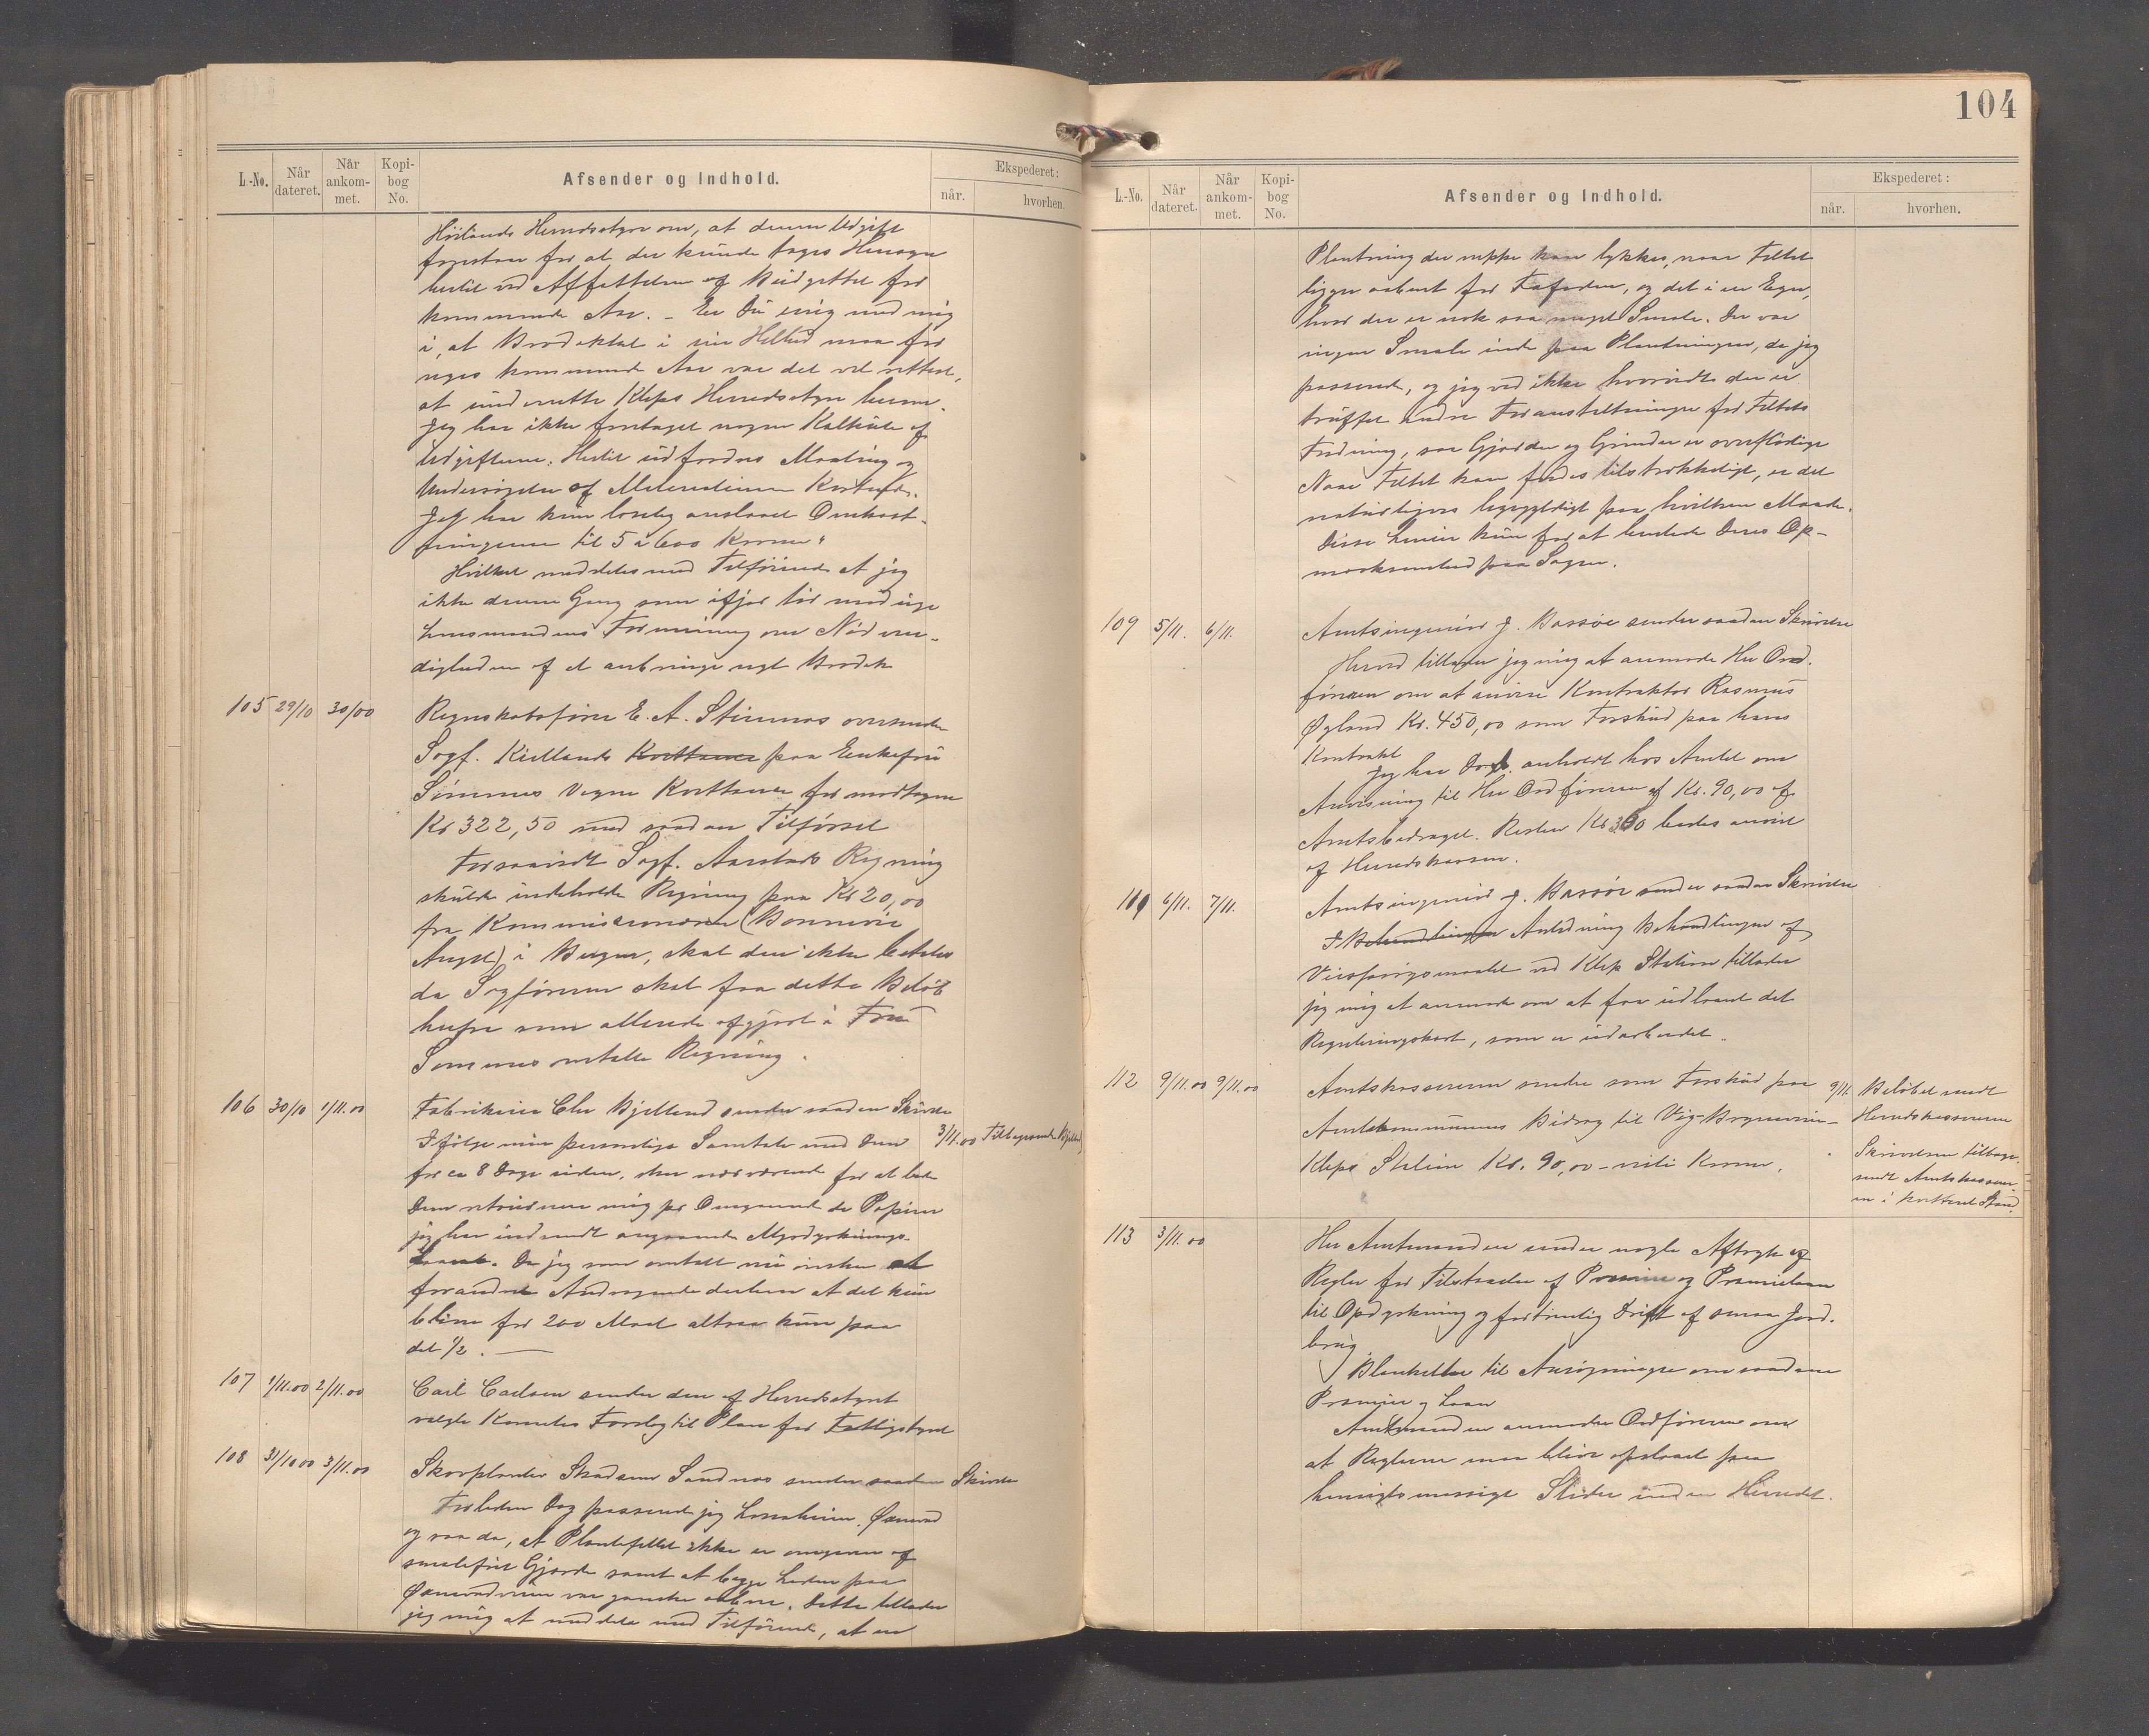 L.-No.
Når dateret.
Når ankom-met.
Kopi-bog No.
Afsender og Indhold.
Ekspederet:
når.
hvorhen.
Høilands Herredsstyre om, at denne Udgift
forestaar for at der kunde tages Hensyn
hertil ved Affattelsen af Budgettet for
kommende Aar. - Er Du enig med mig
i, at Brodækket i sin Helhed maa for
nyes kommende Aar var det vel rettest,
at underrette Kleps Herredsstyre herom.
Jeg har ikke foretaget nogen Kalkule af
Udgifterne. Hertil udfordres Maaling og
Undersøgelse af Materialernes
Jeg har kun løselig anslaaet Omkost-
ningerne til 5 à 600 Kroner"
Hvilket meddeles med Tilføiende at jeg
ikke denne Gang som ifjor tør
Lensmandens Formening om Nødven-
digheden af at anbringe nyt Brodæk
105 29/10 30/00 Regnskabsfører E. A. Stimnes oversender
Sagf. Kiellands Kvittance paa Enkefru
Sømmes Vegne Kvittance for modtagne
Kr 322,50 med saadan Tilførsel
Forsaavidt Sagf. Aarstads Regning
skulde indeholde Regning paa Kr 20,00
fra Kommissionærerne (Bonnevie
Angel) i Bergen, skal den ikke betales
da Sagføreren skal faa dette Beløb
hufra som allerede afgjort i Fru
Sømmes omtalte Regning.
106 30/10 1/11.00 Fabrikeier Chr Bjelland sender saadan Skrivelse
Ifølge min personlige Samtale med Dem 3/11.00 Tilbagesendt Bjelland
for ca 8 Dage siden, sker nærværende for at bede
Dem returnere mig pr Omgaaende de Papirer
jeg har indsendt angaaende Myrdyrknings-
laanet. Da jeg som omtalt nu ønsker at
forandre Andragende derhen at det kun
bliver for 200 Maal altsaa kun paa
det 1/2.
107 1/11.00 2/11.00 Carl Carlsen sender den af Herredsstyret
valgte Komites Forslag til Plan for Fattigstyret
108 31/10 00 3/11.00 Skovplanter Skadsem Sandnes sender saadan Skrivelse
Forleden Dag passerede jeg Lonaheien, Øxnevad
og saa da, at Plantefeltet ikke er omgivet af
smalefrit Gjærde samt at begge Leder paa
Øxnevadveien var ganske aabne. Dette tillader
jeg mig at meddele med Tilføiende, at en
104
L.-No.
Når dateret.
Når ankom-met.
Kopi-bog No.
Afsender og Indhold.
Ekspederet:
når.
hvorhen.
Plantning der neppe kan lykkes, naar Feltet
ligger aabent for Fafærden, og det i en Egn,
hvor der er nok saa meget Smale. Der var
ingen Smale inde paa Plantningen, da jeg
passerede, og jeg ved ikke hvorvidt der er
truffet andre Foranstaltninger for Feltets
Fredning, saa Gjærder og Grinder er overflødige
Naar Feltet kan fredes tilstrækkeligt, er det
naturligvis ligegyldigt paa hvilken Maade.
Disse Linier kun for at henlede Deres Op-
mærksomhed paa Sagen.
109 5/11. 6/11. Amtsingeniør J. Bassøe sender saadan Skrivelse
Herved tillader jeg mig at anmode Hr Ord-
føreren om at anvise Kontraktør Rasmus
Øgland Kr. 450,00 som Forskud paa hans
Kontrakt
Jeg har anholdt hos Amtet om
Anvisning til Hr Ordføreren af Kr. 90,00 af
Amtsbidraget. Resten Kr 360 bedes anvist
af Herredskassen.
110 6/11. 7/11. Amtsingeniør J. Bassøe sender saadan Skrivelse
I Behandlingen Anledning Behandlingen af
Veispørgsmaalet ved Klep Station tillader
jeg mig at anmode om at faa udlaant det
Reguleringskart, som er udarbeidet.
112 9/11.00 9/11.00 Amtskassereren sender som Forskud paa
Amtskommunens Bidrag til Vig-Bryne-
Kleps Station Kr. 90,00 - niti Kroner.
9/11. Beløbet sendt
Herredskassereren
Skrivelsen tilbage-
sendt Amtskasserer-
en i kvitteret Stand.
113 3/11.00 Hr Amtmanden sender nogle Aftryk af
Regler for Tilstaaelse af Præmier og Præmielaan
til Opdyrkning og fortrinlig Drift af smaa Jord-
brug
Blanketter til Ansøgninger om saadanne
Præmier og Laan
Amtmanden anmoder Ordføreren om
at Reglerne maa blive opslaaet paa
hensigtsmæssige Steder inden Herredet.